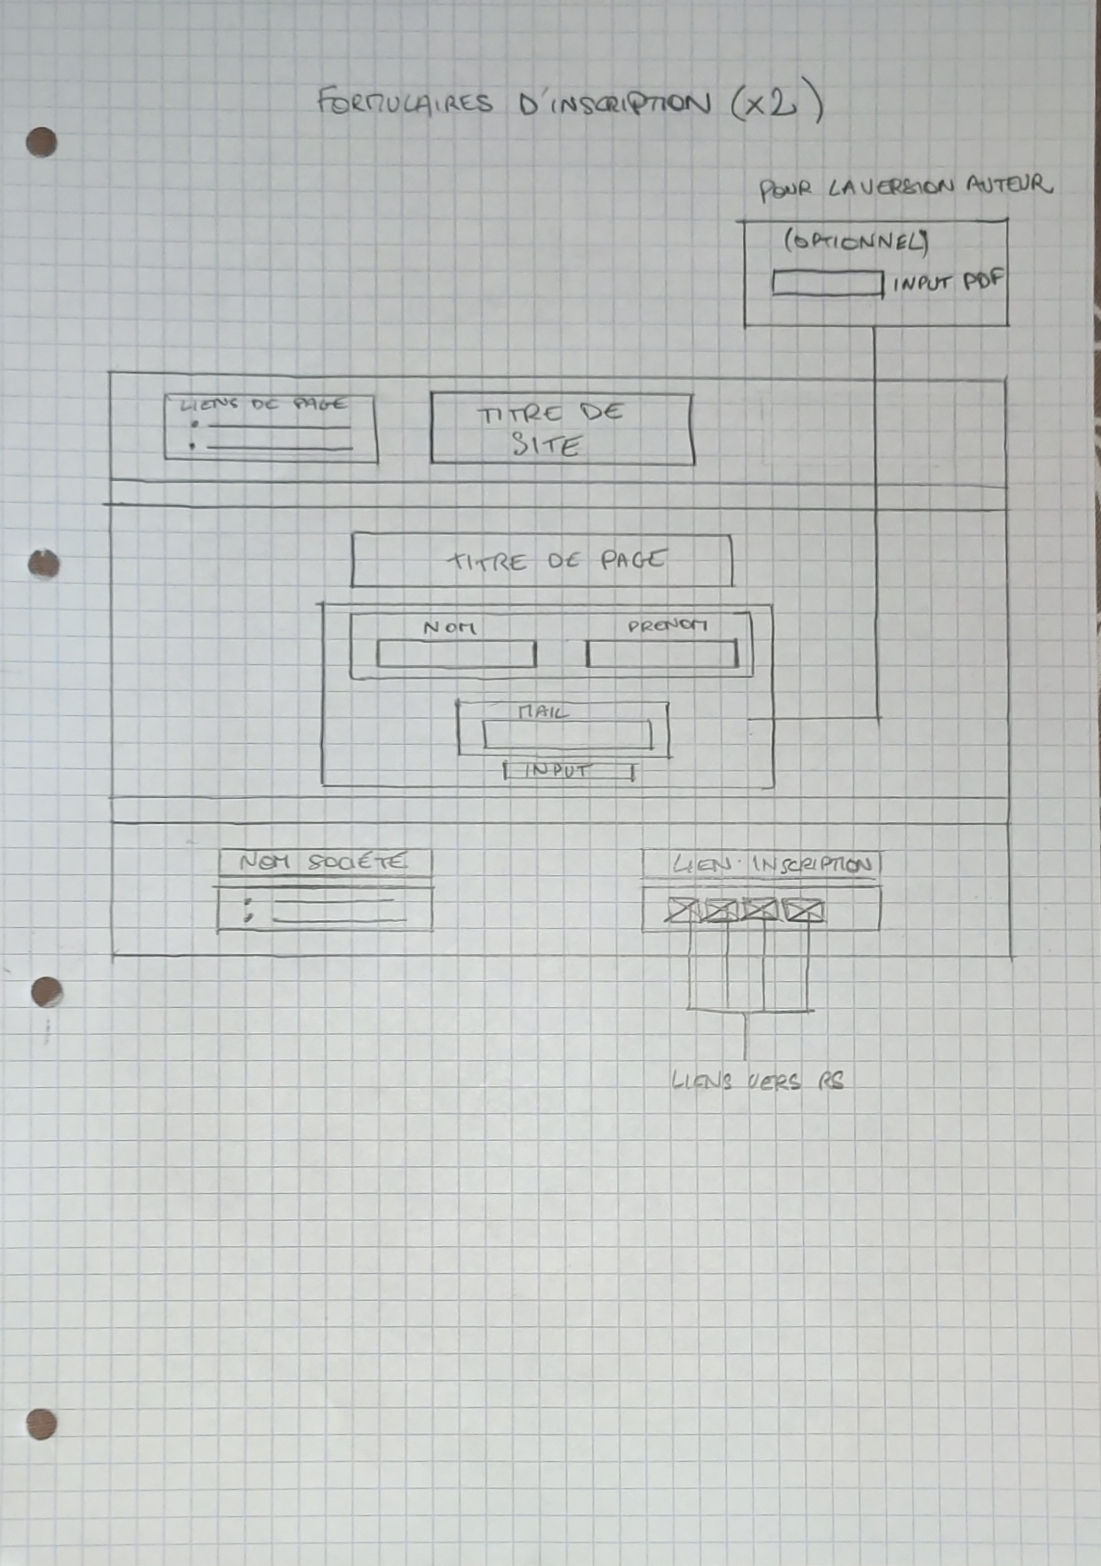 FORMULAIRES D'INSCRIPTION (X2)
POUR LA VERSION AUTEUR
(OPTIONNEL)
INPUT PDF
LIENS DE PAGE
TITRE DE
SITE
TITRE DE PAGE
NOM
PRENOM
MAIL
INPUT
NOM SOCIÉTÉ
LIEN INSCRIPTION
LIENS VERS RS